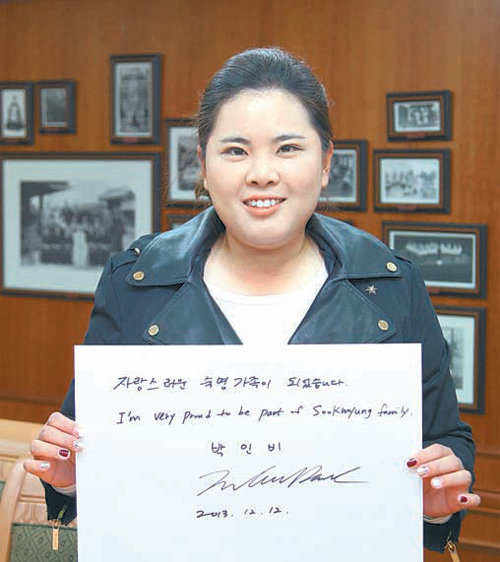 자랑스러운 숙명가족이 되었습니다.
I'm very proud to be part of SooKmyung family.
박 인 비
Inbee Park
2013. 12. 12.